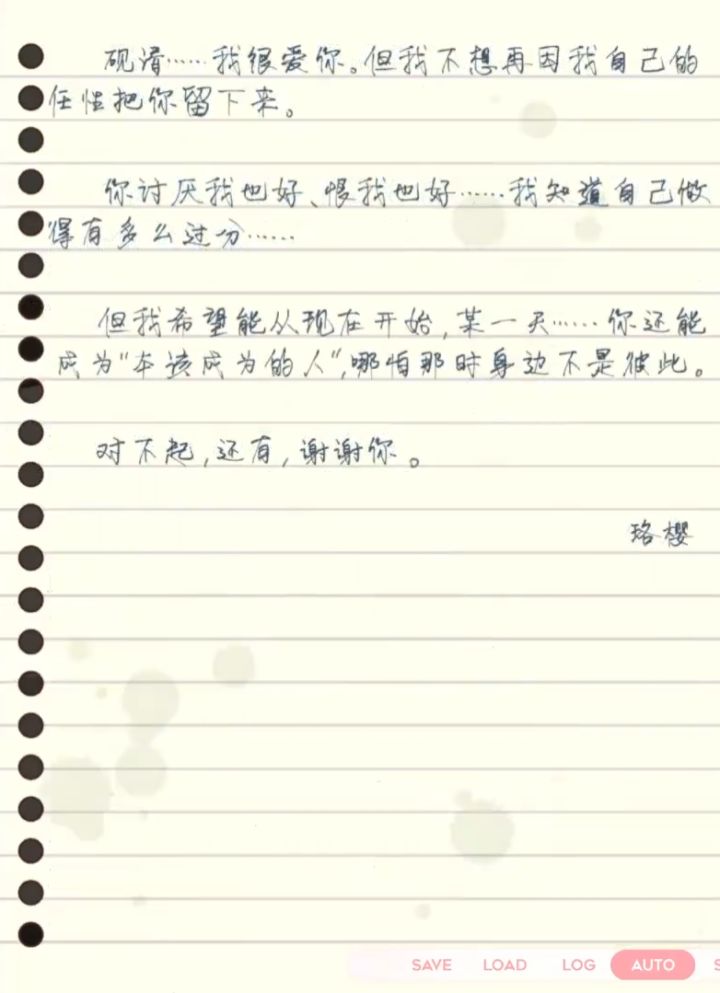 砚清……我很爱你。但我不想再因我自己的
任性把你留下来。
你讨厌我也好、恨我也好……我知道自己做
得有多么过分……
但我希望能从现在开始,某一天……你还能
成为"本该成为的人",哪怕那时身边不是彼此。
对不起,还有,谢谢你。
珞樱
SAVE LOAD LOG AUTO S